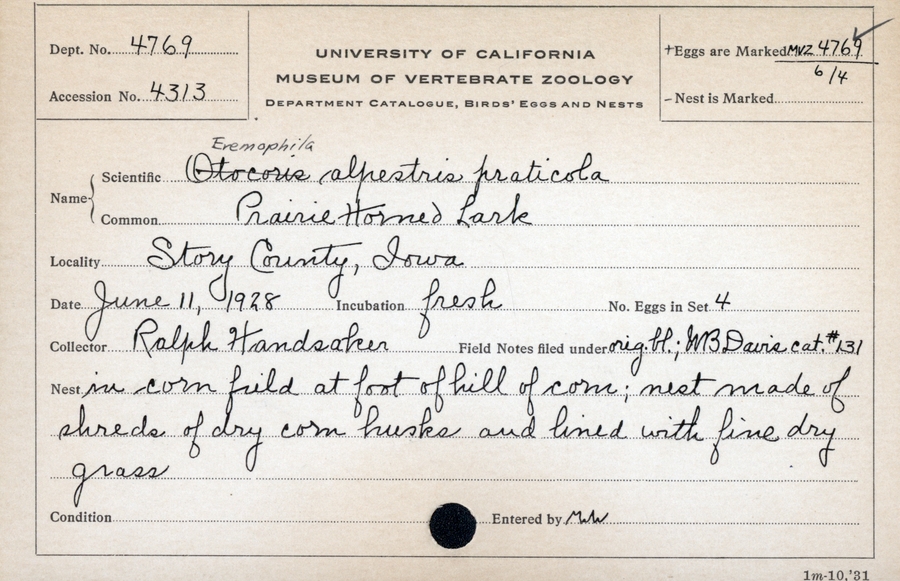 Dept. No. 4769
Accession No. 4313
UNIVERSITY OF CALIFORNIA
MUSEUM OF VERTEBRATE ZOOLOGY
DEPARTMENT CATALOGUE, BIRDS' EGGS AND NESTS
+Eggs are Marked MVZ 4769
6/4
-Nest is Marked
Eremophila
Name { Scientific Otocoris alpestris praticola
Common Prairie Horned Lark
Locality Story County, Iowa
Date June 11, 1928 Incubation fresh No. Eggs in Set 4
Collector Ralph Handsaker Field Notes filed under orig. bl.; WB Davis cat. #131
Nest in corn field at foot of hill of corn; nest made of
shreds of dry corn husks and lined with fine dry
grass
Condition Entered by
1m-10,'31